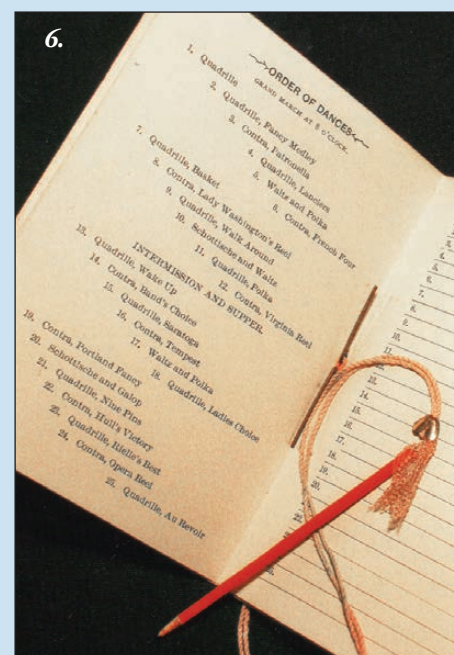 6.
ORDER OF DANCES
GRAND MARCH AT 8 O'CLOCK.
1. Quadrille
2. Quadrille, Fancy Medley
3. Contra, Patronella
4. Quadrille, Lanciers
5. Waltz and Polka
6. Contra, French Four
7. Quadrille, Basket
8. Contra, Lady Washington's Reel
9. Quadrille, Walk Around
10. Schottische and Waltz
11. Quadrille, Polka
12. Contra, Virginia Reel
INTERMISSION AND SUPPER.
13. Quadrille, Wake Up
14. Contra, Band's Choice
15. Quadrille, Saratoga
16. Contra, Tempest
17. Waltz and Polka
18. Quadrille, Ladies Choice
19. Contra, Portland Fancy
20. Schottische and Galop
21. Quadrille, Nine Pins
22. Contra, Hull's Victory
23. Quadrille, Rielle's Best
24. Contra, Opera Reel
25. Quadrille, Au Revoir
7.
8.
9.
10.
11.
12.
13.
14.
15.
16.
17.
18.
19.
20.
22